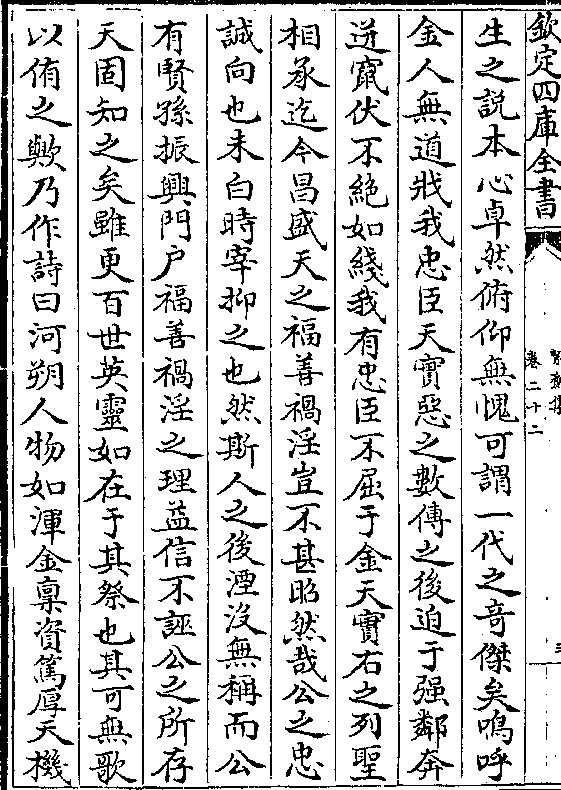 欽定四庫全書
卷二十二
三
生之説本心卓然俯仰無愧可謂一代之竒傑矣嗚呼
金人無道戕我忠臣天實惡之數傳之後迫于强鄰奔
迸竄伏不絶如綫我有忠臣不屈于金天實右之列聖
相承迄今昌盛天之福善禍淫豈不甚昭然哉公之忠
誠向也未白時宰抑之也然斯人之後湮沒無稱而公
有賢孫振興門户福善禍淫之理益信不誣公之所存
天固知之矣雖更百世英靈如在于其祭也其可無歌
以侑之歟乃作詩曰河朔人物如渾金禀資篤厚天機